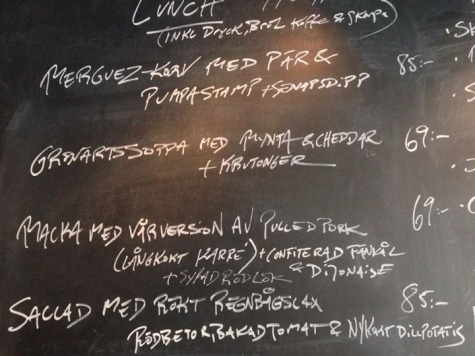 LUNCH
(INKL DRYCK, BRÖD, KAFFE & SKORPA)
MERGUEZ-KORV MED PÄR & 85:-
PUMPASTAMP + SENAPSDIPP
GRÖNÄRTSSOPPA MED MYNTA & CHEDDAR 69:-
+ KRUTONGER
MACKA MED VÅR VERSION AV PULLED PORK 69:-
(LÅNGKOKT KARRÉ) + CONFITERAD FÄNKÅL
+ SYRAD RÖDLÖK & DIJONAISE
SALLAD MED RÖKT REGNBÅGSLAX 85:-
RÖDBETOR, BAKAD TOMAT & NYKOKT DILLPOTATIS